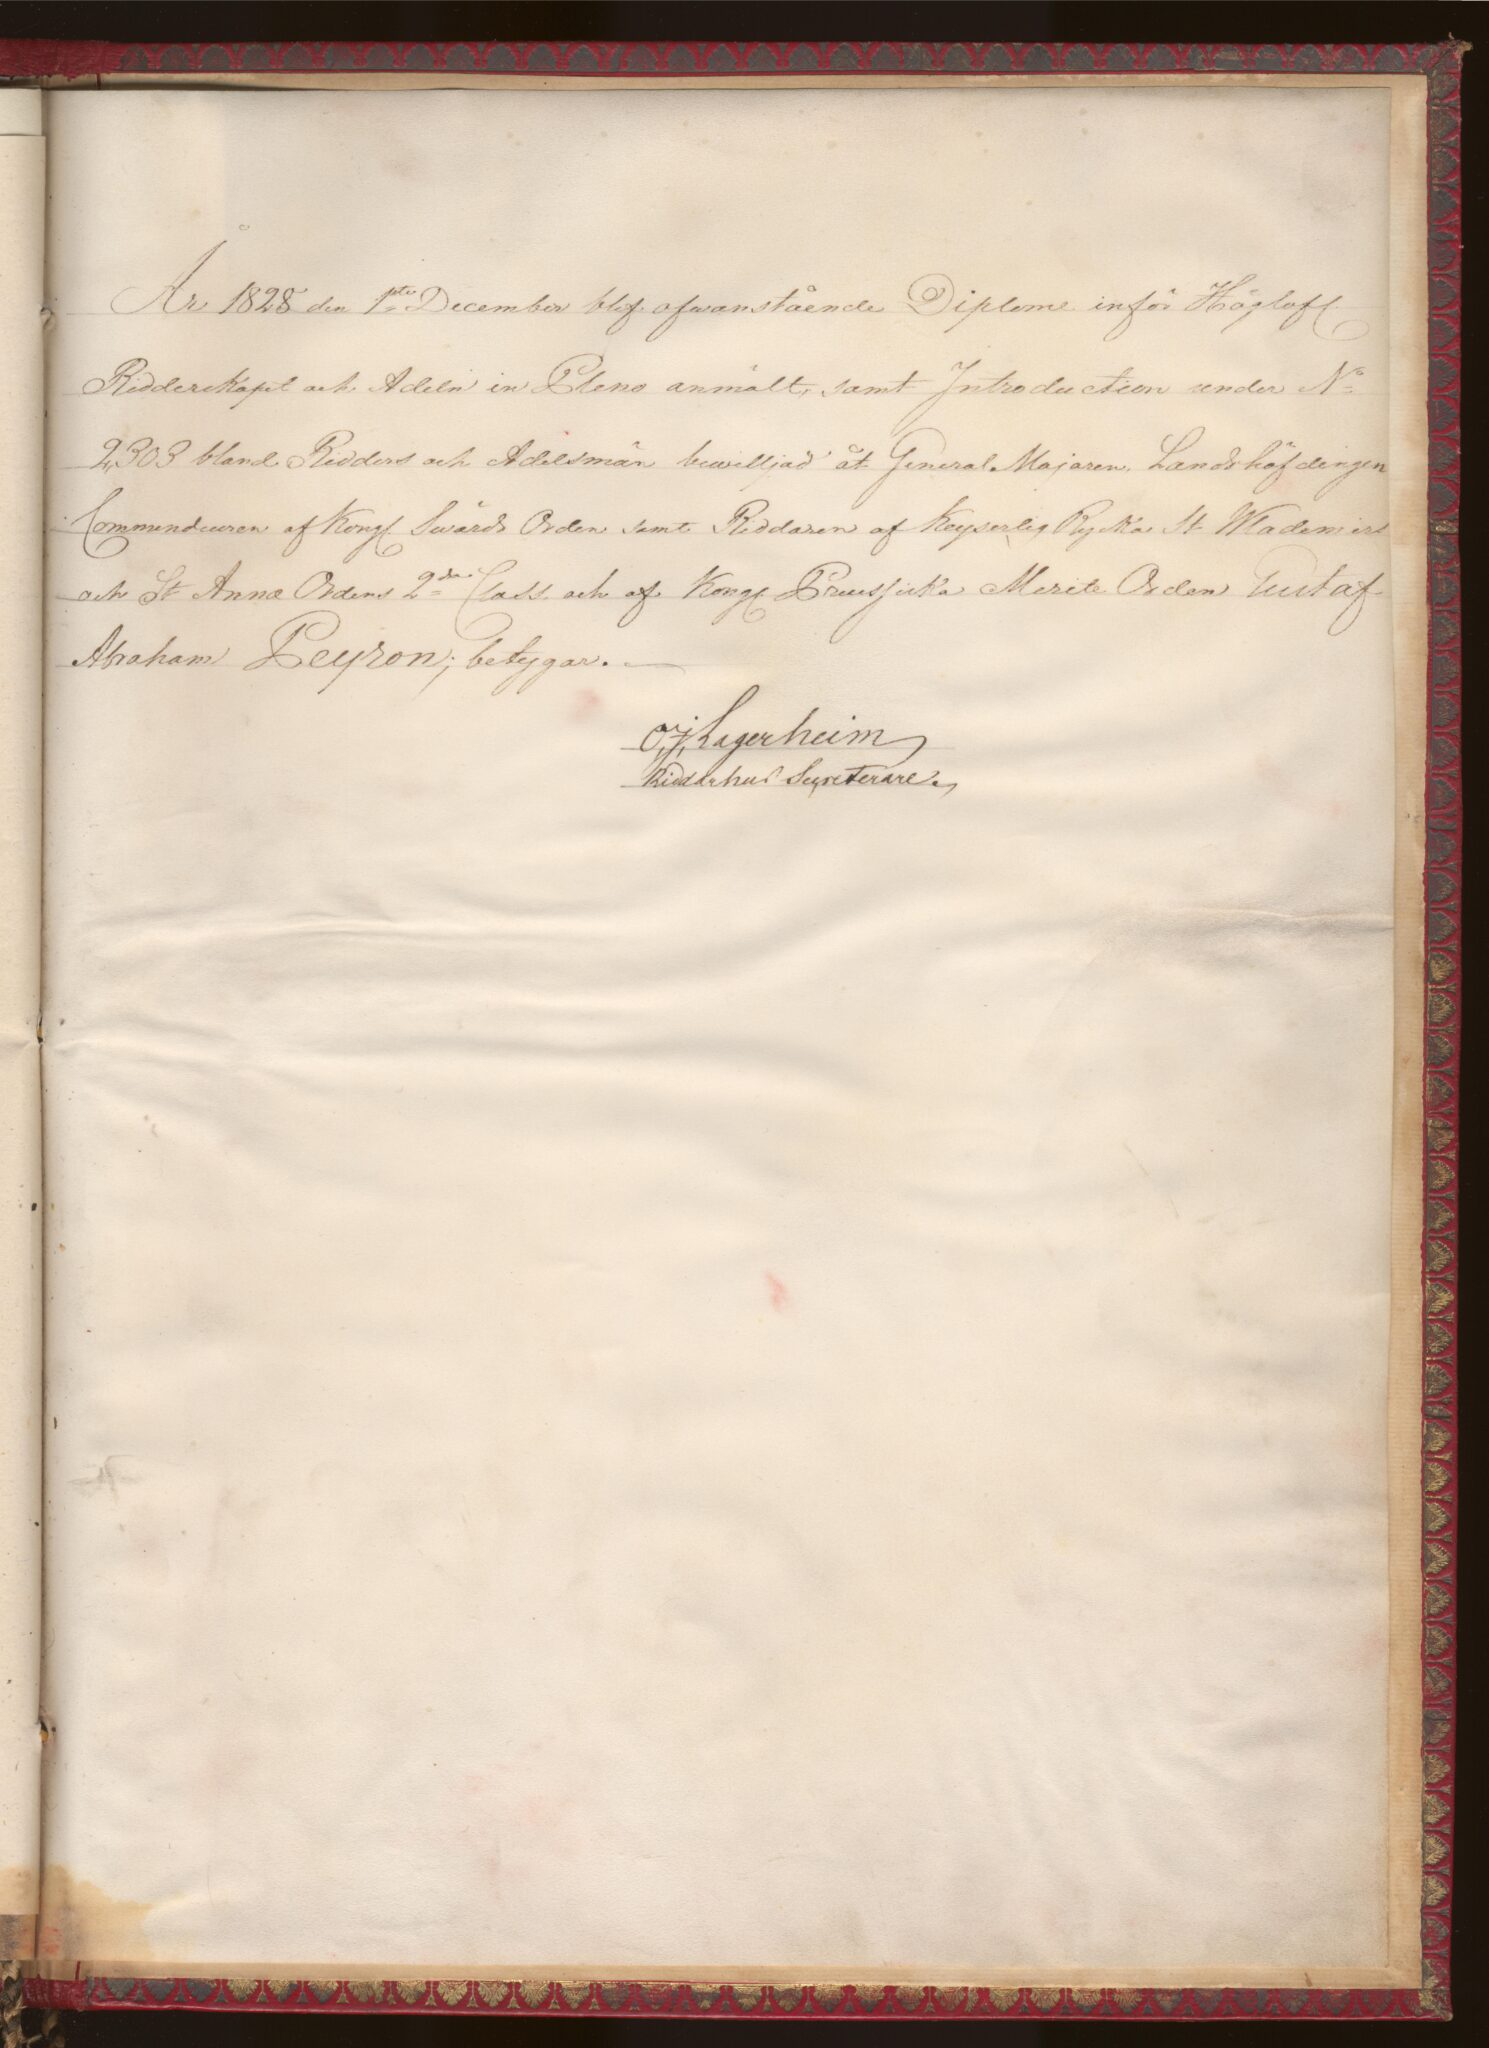 År 1828 den 1sta December blef ofwanstående Diplome inför Höglofl.
Ridderskapet och Adeln in Pleno anmält, samt Introduction under No
2,303 bland Ridders och Adelsmän bewilljad åt General Majoren, Landshöfdingen
Commendeuren af Kongl Swärds Orden samt Riddaren af Keyserlig Ryska St Wlademirs
och St Annæ Ordens 2dra Class. och af Kongl Preussiska Merite Orden Gustaf
Abraham Peyron; betygar.
O, J, Lagerheim
Riddarhus Secreterare.